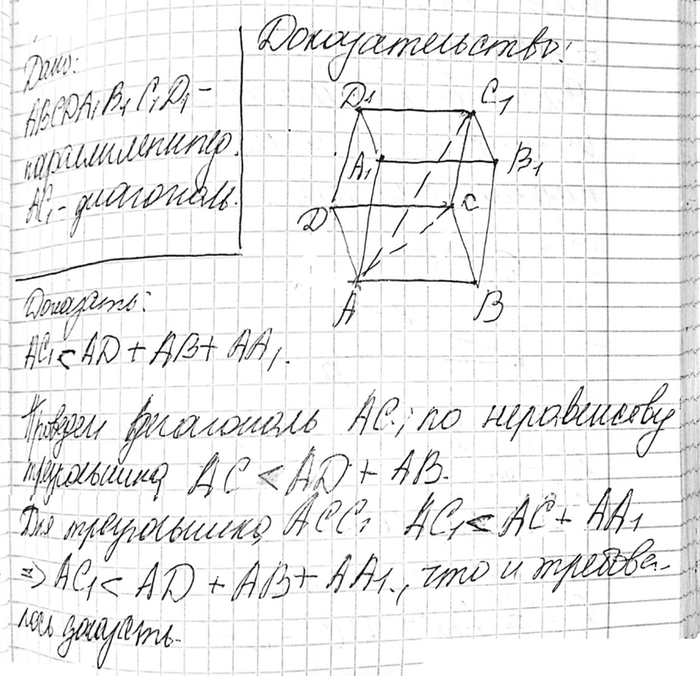 Доказательство:
Дано:
ABCDA₁B₁C₁D₁ -
параллелепипед.
AC₁ - диагональ.
D₁ C₁
A₁ B₁
D C
A B
Доказать:
AC₁ < AD + AB + AA₁.
Проведем диагональ AC; по неравенству
треугольника AC < AD + AB.
Для треугольника ACC₁ AC₁ < AC + AA₁
=> AC₁ < AD + AB + AA₁, что и требова-
лось доказать.